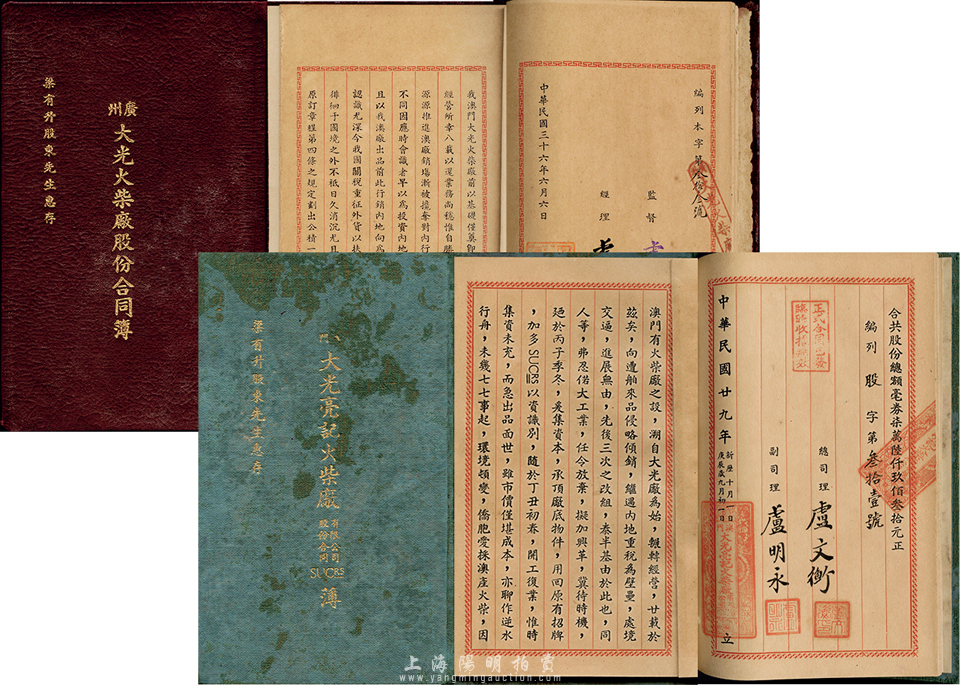 廣州大光火柴廠股份合同簿
梁有升股東先生惠存
我澳門大光火柴廠前以基礎僅奠即
經營所幸八載以還業務尚穩惟自勝
源源推進澳廠銷塲漸被攙奪對內行
不同因應時會識者早以為投資內地
且以我澳廠出品前此行銷內地向為
認識尤深今我國關稅重征外貨以扶
徘徊于國境之外不祇日久消沉尤且
原訂章程第四條之規定劃出公積一
編列本字第叁拾叁號
監督
經理
中華民國三十六年六月六日
澳門大光亮記火柴廠有限公司股份合同SUCRS簿
梁有升股東先生惠存
澳門有火柴廠之設，溯自大光廠為始，艱辣經營，廿載於
茲矣，向遭舶來品侵略傾銷，繼遇內地重稅為壁壘，處境
交逼，進展無由，先後三次之改組，泰半基由於此也，同
人等，弗忍偌大工業，任令放棄，擬加興革，冀待時機，
廼於丙子季冬，爰集資本，承頂廠底物件，用回原有招牌
，加多SUCRS以資識別，隨於丁丑初春，開工復業，惟時
集資未充，而急出品面世，雖市價僅堪成本，亦聊作逆水
行舟，未幾七七事起，環境頓變，僑胞愛採澳產火柴，因
合共股份總額毫券柒萬陸仟玖佰叁拾元正
編列股字第叁拾壹號
總司理 盧文衡
副司理 盧明永
中華民國廿九年新歷十月一日庚辰歲九月初一日
立
上海陽明拍賣
www.yangmingauction.com